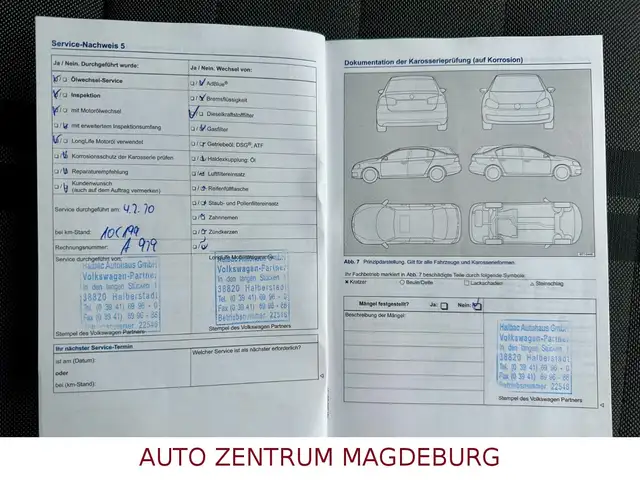 Service-Nachweis 5
Ja / Nein. Durchgeführt wurde:
Ölwechsel-Service
Inspektion
mit Motorölwechsel
mit erweitertem Inspektionsumfang
LongLife Motoröl verwendet
Korrosionsschutz der Karosserie prüfen
Reparaturempfehlung
Kundenwunsch
(auch auf dem Auftrag vermerken)
Service durchgeführt am: 4.2.20
bei km-Stand:
Rechnungsnummer: A 979
Service durchgeführt von:
Halbac Autohaus GmbH
Volkswagen-Partner
In den langen Stücken 1
38820 Halberstadt
Tel. (0 39 41) 69 96 - 0
Fax (0 39 41) 69 96 - 66
22548
Stempel des Volkswagen Partners
Ja / Nein. Wechsel von:
AdBlue®
Bremsflüssigkeit
Dieselkraftstofffilter
Gasfilter
Getriebeöl: DSG®, ATF
Haldexkupplung: Öl
Luftfiltereinsatz
Reifenfüllflasche
Staub- und Pollenfiltereinsatz
Zahnriemen
Zündkerzen
Halbac Autohaus GmbH
Volkswagen-Partner
In den langen Stücken 1
38820 Halberstadt
Tel. (0 39 41) 69 96 - 0
Fax (0 39 41) 69 96 - 66
Betriebsnummer 22548
Stempel des Volkswagen Partners
Ihr nächster Service-Termin
ist am (Datum):
oder
bei (km-Stand):
Welcher Service ist als nächster erforderlich?
Dokumentation der Karosserieprüfung (auf Korrosion)
Abb. 7 Prinzipdarstellung. Gilt für alle Fahrzeuge und Karosserieformen.
Ihr Fachbetrieb markiert in Abb. 7 beschädigte Teile durch folgende Symbole:
× Kratzer ○ Beule/Delle □ Lackschaden △ Steinschlag
Mängel festgestellt? Ja: Nein:
Beschreibung der Mängel:
Halbac Autohaus GmbH
Volkswagen-Partner
In den langen Stücken 1
38820 Halberstadt
Tel. (0 39 41) 69 96 - 0
Fax (0 39 41) 69 96 - 66
Betriebsnummer 22548
Stempel des Volkswagen Partners
AUTO ZENTRUM MAGDEBURG